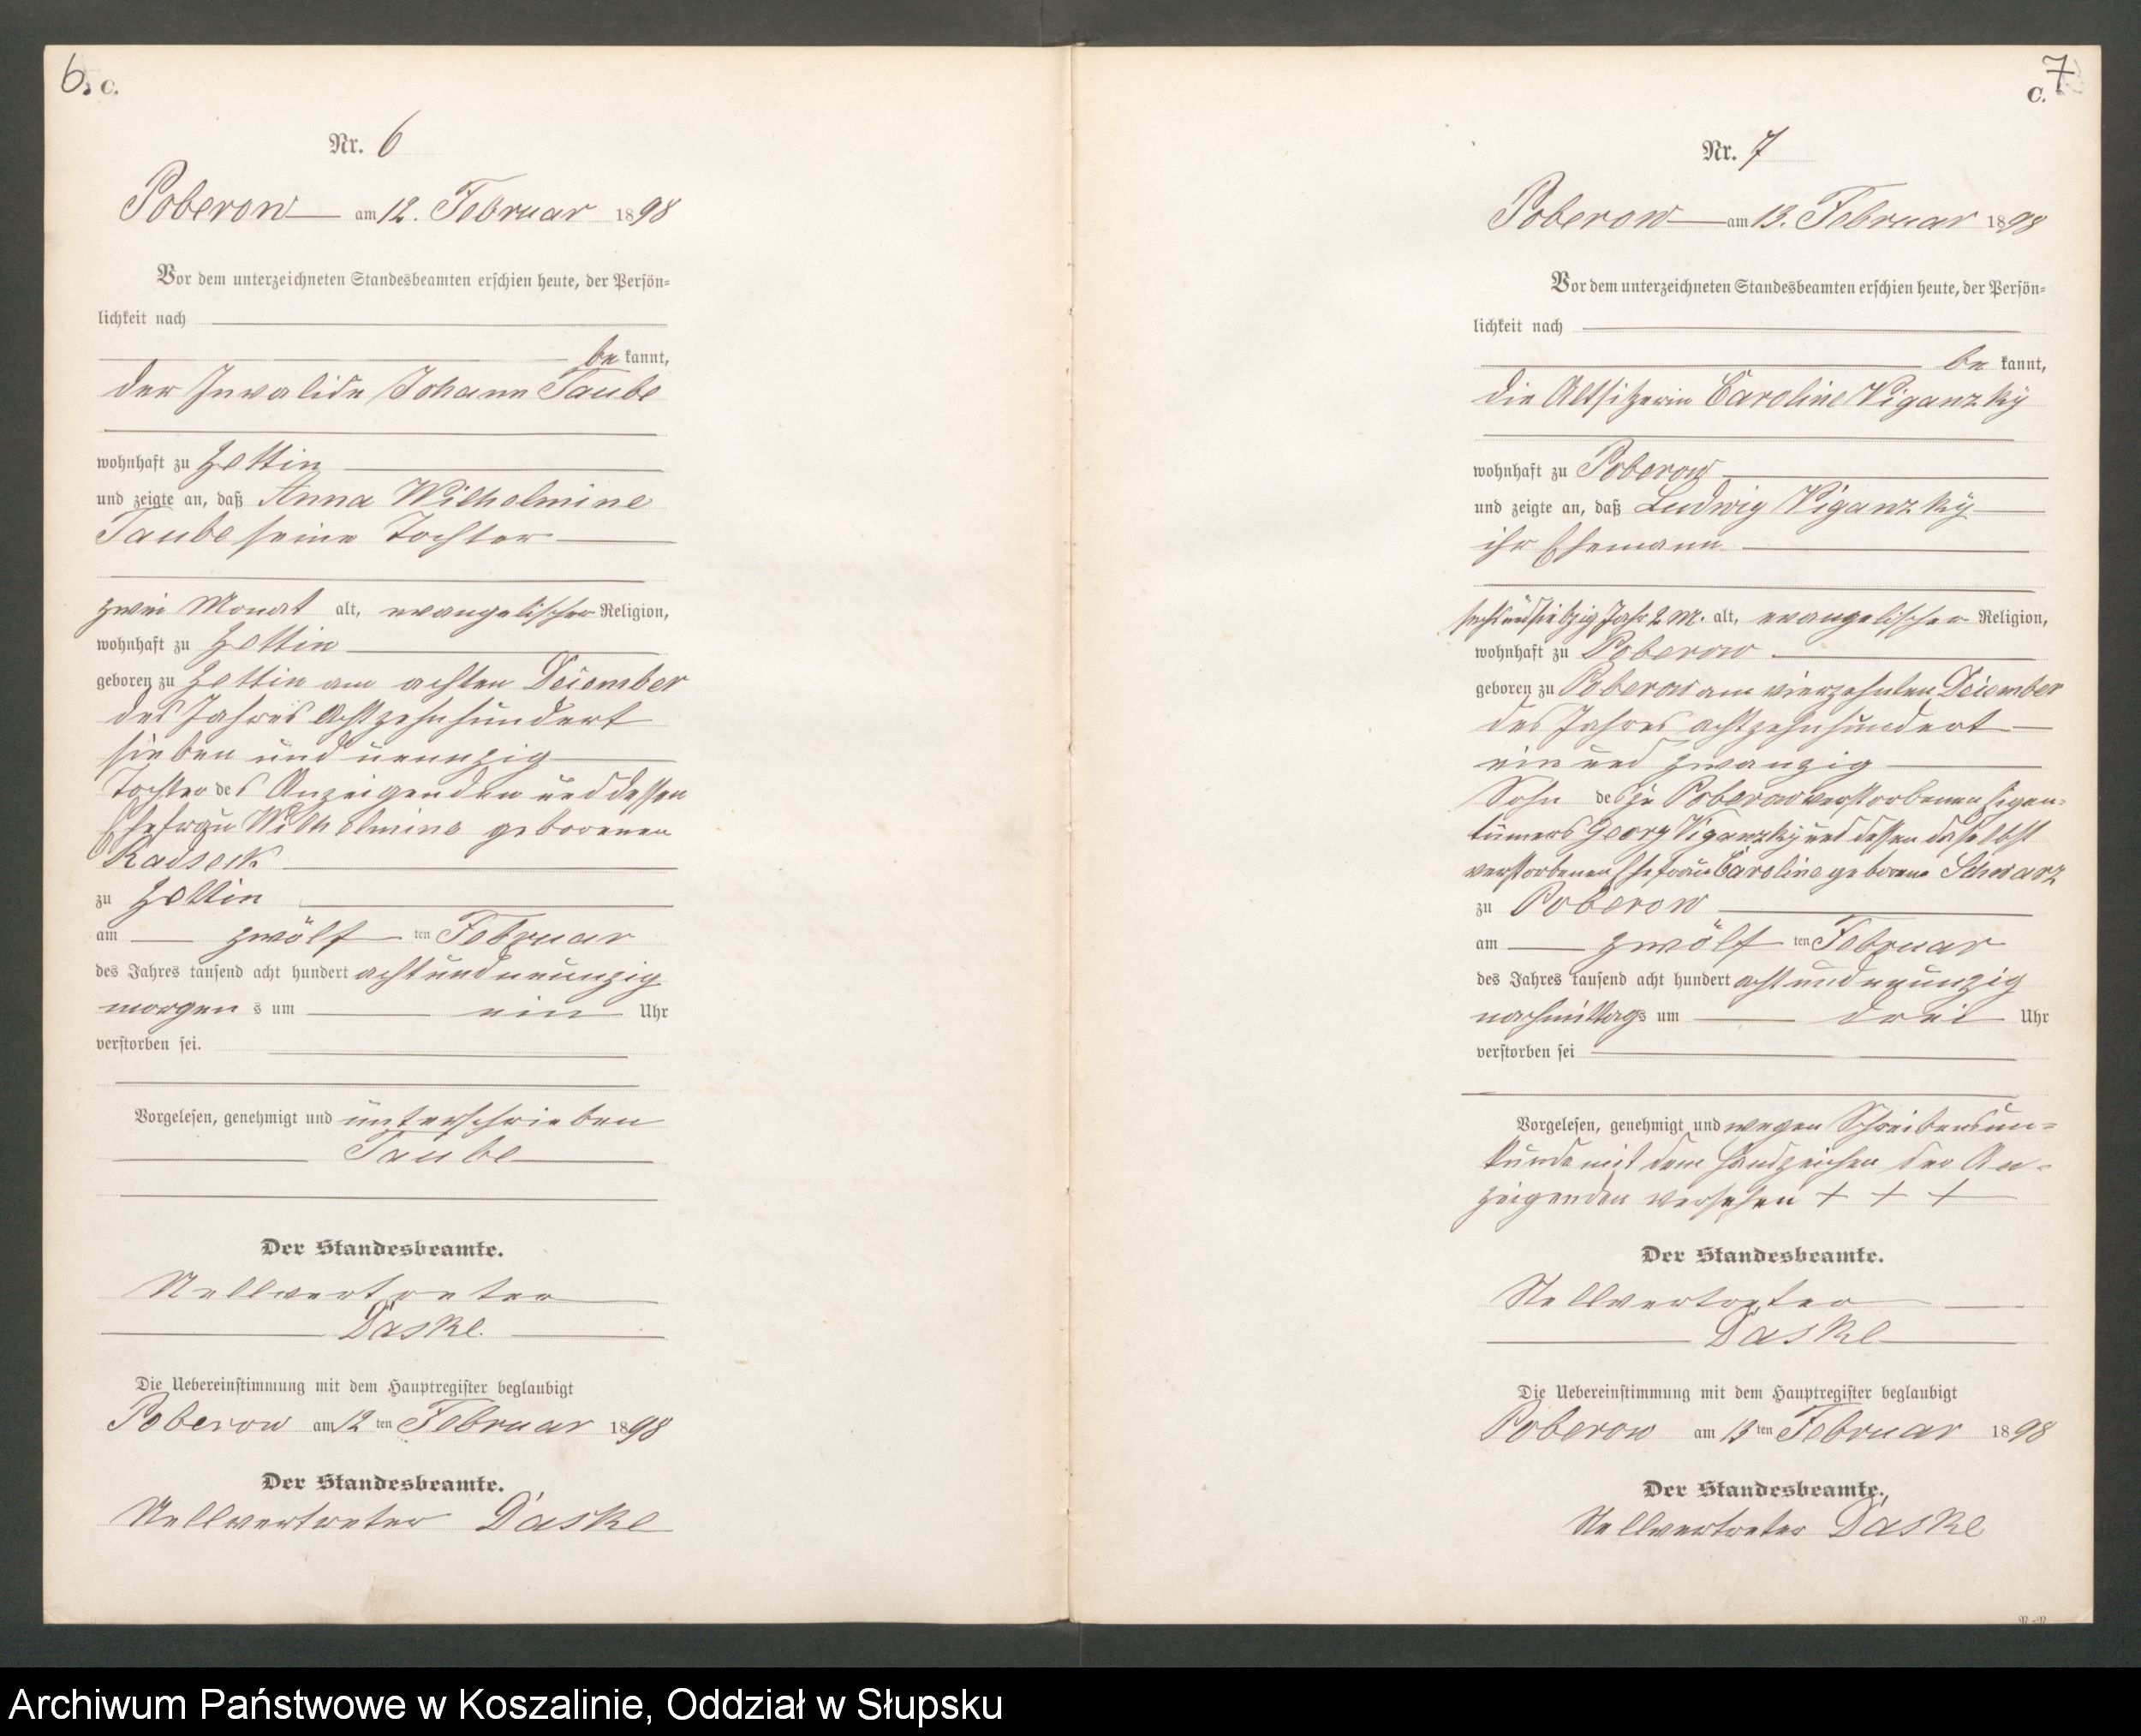 6. c.
Nr. 6
Poberow am 12. Februar 1898
Vor dem unterzeichneten Standesbeamten erschien heute, der Persön-
lichkeit nach
be kannt,
der Invalide Johann Taube
wohnhaft zu Zettin
und zeigte an, daß Anna Wilhelmine
Taube seine Tochter
zwei Monat alt, evangelischer Religion,
wohnhaft zu Zettin
geboren zu Zettin am achten Dezember
des Jahres Achtzehnhundert
sieben und neunzig
Tochter des Anzeigenden und dessen
Ehefrau Wilhelmine geborenen
Radseck
zu Zettin
am zwölf ten Februar
des Jahres tausend acht hundert achtundneunzig
morgen s um ein Uhr
verstorben sei.
Vorgelesen, genehmigt und unterschrieben
Taube
Der Standesbeamte.
Stellvertreter
Daske.
Die Uebereinstimmung mit dem Hauptregister beglaubigt
Poberow am 12 ten Februar 1898
Der Standesbeamte.
Stellvertreter Daske
7
c.
Nr. 7
Poberow am 13. Februar 1898
Vor dem unterzeichneten Standesbeamten erschien heute, der Persön-
lichkeit nach
be kannt,
die Altsitzerin Caroline Viganzky
wohnhaft zu Poberow
und zeigte an, daß Ludwig Viganzky
ihr Ehemann
sechsundsiebzig Jahr 2 M. alt, evangelischer Religion,
wohnhaft zu Poberow
geboren zu Poberow am vierzehnten Dezember
des Jahres achtzehnhundert
ein und zwanzig
Sohn des zu Poberow verstorbenen Eigen-
tümers Georg Viganzky und dessen daselbst
verstorbenen Ehefrau Caroline geborene Schwarz
zu Poberow
am zwölf ten Februar
des Jahres tausend acht hundert achtundneunzig
nachmittags um drei Uhr
verstorben sei
Vorgelesen, genehmigt und wegen Schreibensun-
kunde mit dem Handzeichen der An-
zeigenden versehen + + +
Der Standesbeamte.
Stellvertreter
Daske
Die Uebereinstimmung mit dem Hauptregister beglaubigt
Poberow am 13 ten Februar 1898
Der Standesbeamte.
Stellvertreter Daske
Archiwum Państwowe w Koszalinie, Oddział w Słupsku